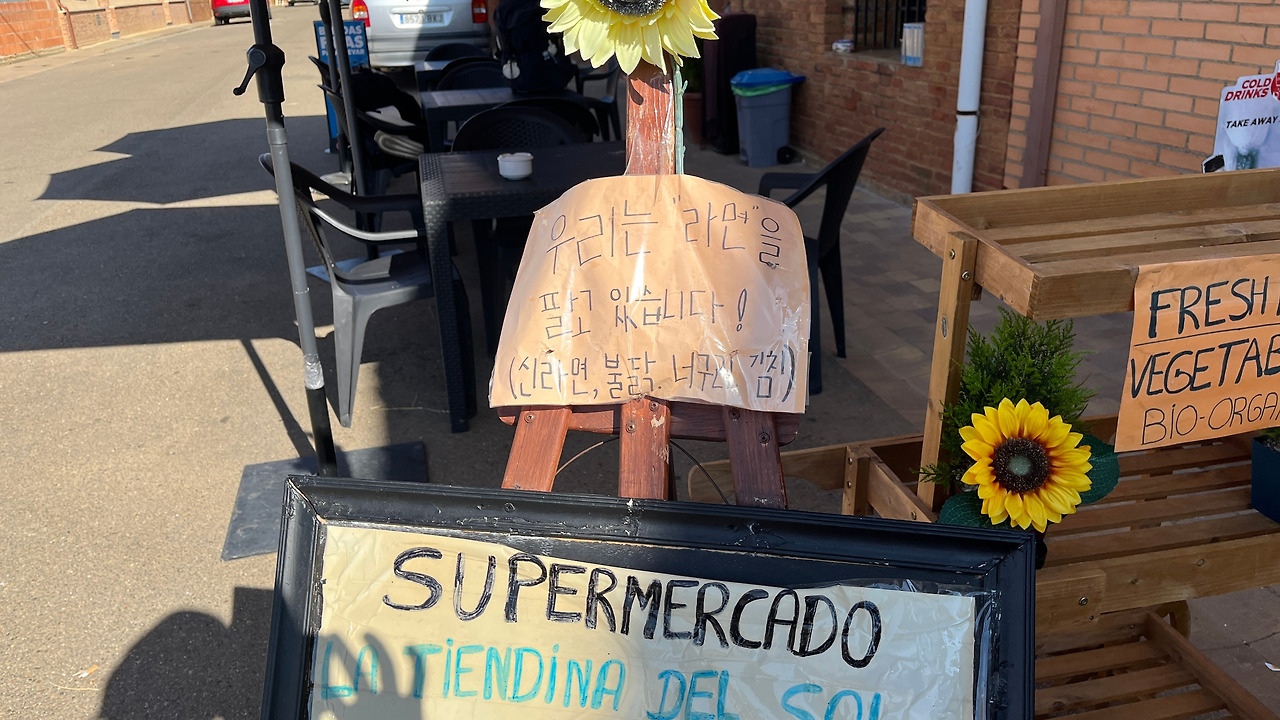 우리는 "라면"을
팔고 있습니다!
(신라면, 불닭, 너구리, 김치)
SUPERMERCADO
LA TIENDINA DEL SOL
FRESH
VEGETAB
BIO-ORGA
COLD
DRINKS
TAKE AWAY